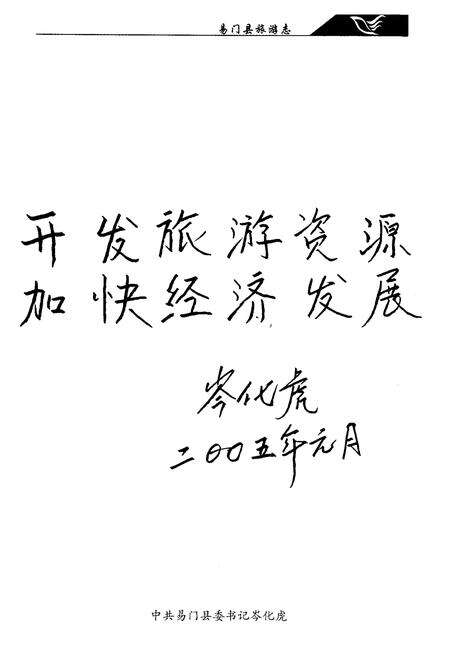 易门县旅游志
开发旅游资源
加快经济发展
岑化虎
二〇〇五年元月
中共易门县委书记岑化虎